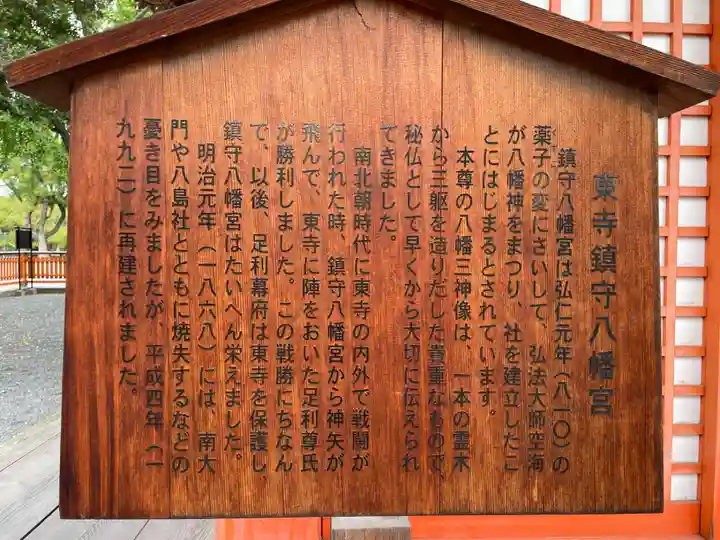 東寺鎮守八幡宮
鎮守八幡宮は弘仁元年(八一〇)の
薬子の変にさいして、弘法大師空海
くすこ
が八幡神をまつり、社を建立したこ
とにはじまるとされています。
本尊の八幡三神像は、一本の霊木
から三躯を造りだした貴重なもので、
秘仏として早くから大切に伝えられ
てきました。
南北朝時代に東寺の内外で戦闘が
行われた時、鎮守八幡宮から神矢が
飛んで、東寺に陣をおいた足利尊氏
が勝利しました。この戦勝にちなん
で、以後、足利幕府は東寺を保護し、
鎮守八幡宮はたいへん栄えました。
明治元年(一八六八)には、南大
門や八島社とともに焼失するなどの
憂き目をみましたが、平成四年(一
九九二)に再建されました。